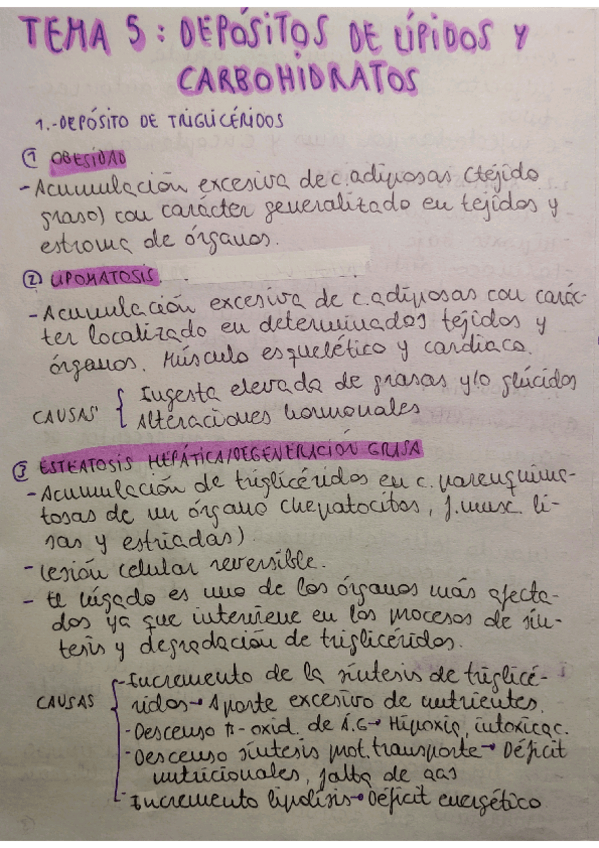 TEMA 5: DEPÓSITOS DE LÍPIDOS Y
CARBOHIDRATOS
1.-DEPÓSITO DE TRIGLICÉRIDOS
① OBESIDAD
- Acumulación excesiva de c.adiposas (tejido
graso) con carácter generalizado en tejidos y
estroma de órganos.
② LIPOMATOSIS
- Acumulación excesiva de c.adiposas con carác-
ter localizado en determinados tejidos y
órganos. Músculo esquelético y cardiaco.
CAUSAS { Ingesta elevada de grasas y/o glúcidos
Alteraciones hormonales
③ ESTEATOSIS HEPÁTICA/DEGENERACIÓN GRASA
- Acumulación de triglicéridos en c. parenquima-
tosas de un órgano (hepatocitos, f.musc. li-
sas y estriadas).
- Lesión celular reversible.
- El hígado es uno de los órganos más afecta-
dos ya que interviene en los procesos de sín-
tesis y degradación de triglicéridos.
CAUSAS { - Incremento de la síntesis de triglicé-
ridos → Aporte excesivo de nutrientes.
- Descenso β-oxid. de Á.G → Hipoxia, intoxicac.
- Descenso síntesis prot. transporte → Déficit
nutricionales, falta de aas
- Incremento lipólisis → Déficit energético